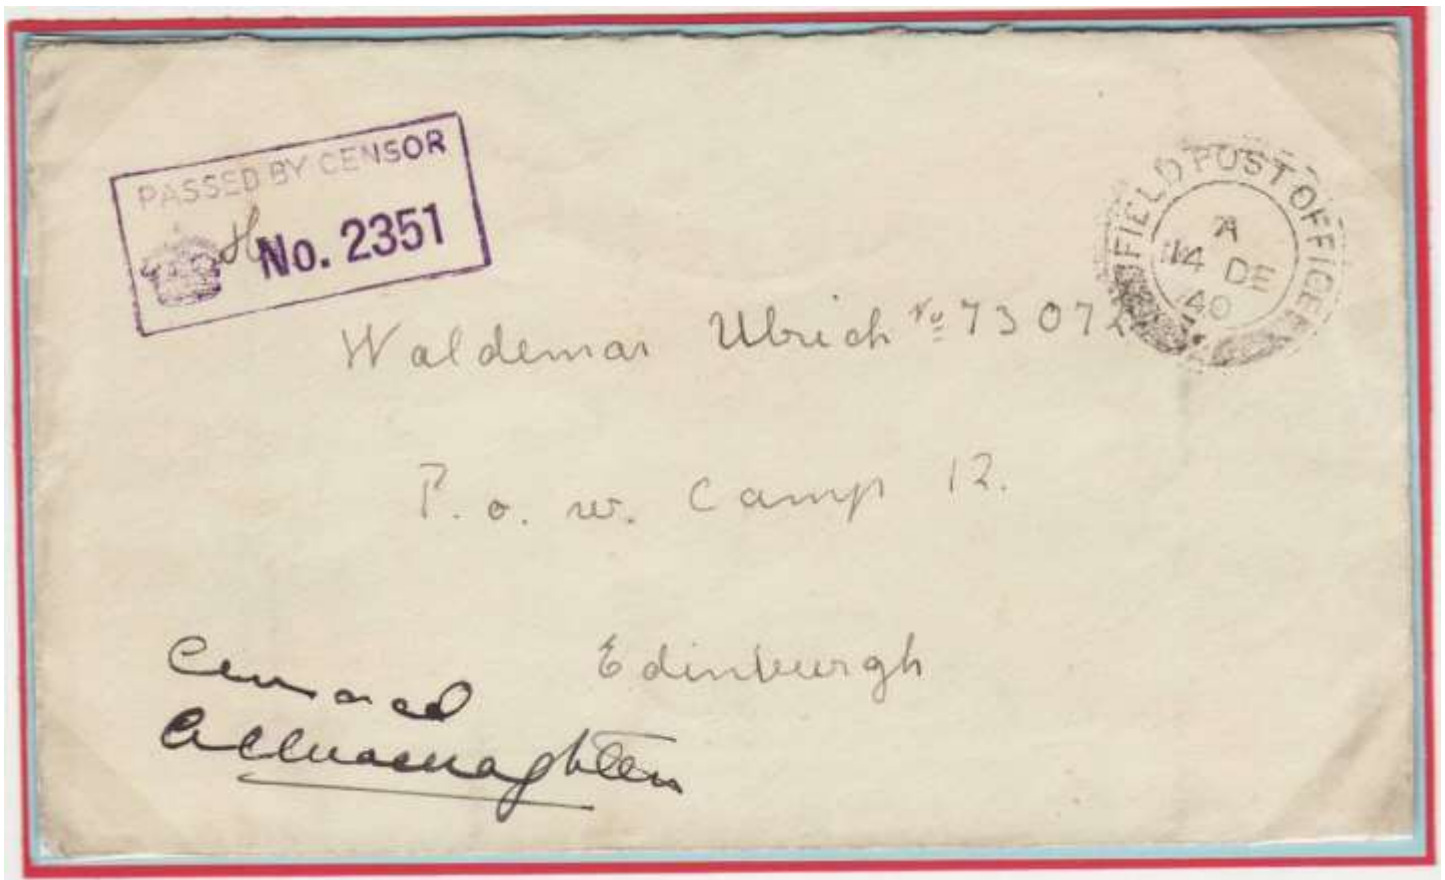 PASSED BY CENSOR
H No. 2351
FIELD POST OFFICE
A
14 DE
40
Waldemar Ulrich No 7307
P. o. w. Camp 12.
Edinburgh
Censored